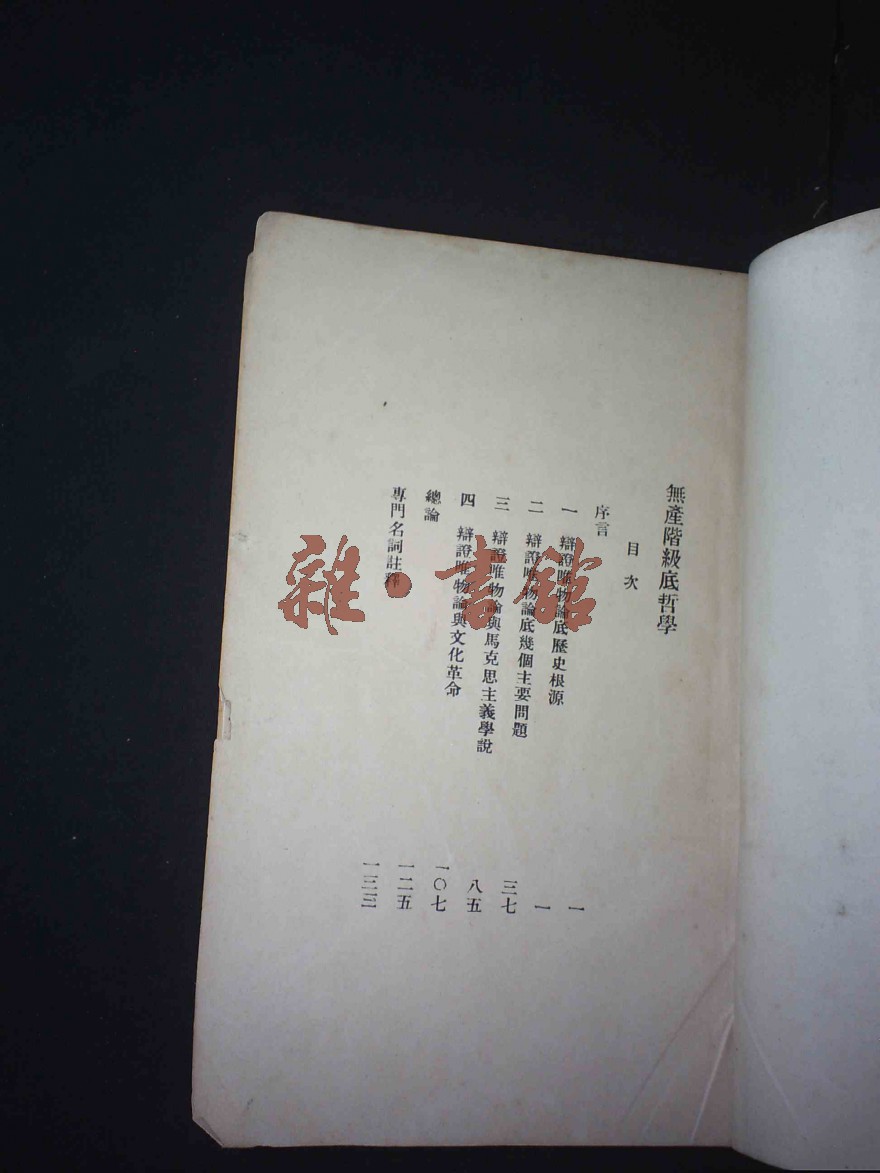 無產階級底哲學
目次
序言 一
一 辯證唯物論底歷史根源 一
二 辯證唯物論底幾個主要問題 三七
三 辯證唯物論與馬克思主義學說 八五
四 辯證唯物論與文化革命 一〇七
總論 一二五
專門名詞註釋 一三三
雜·書館